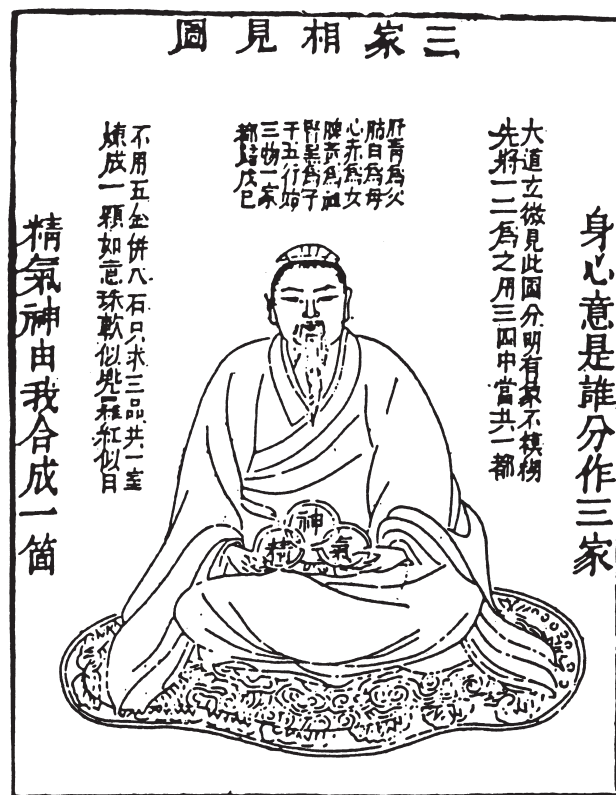 三家相見圖
身心意是誰分作三家
大道玄微見此圖分明有象不模糊
先將一二為之用三四中當共一都
肝青為父
肺白為母
心赤為女
脾黃為祖
腎黑為子
子五行始
三物一家
都歸戊己
不用五金併八石只求三品共一室
煉成一顆如意珠軟似兜羅紅似日
精氣神由我合成一箇
神
氣
精